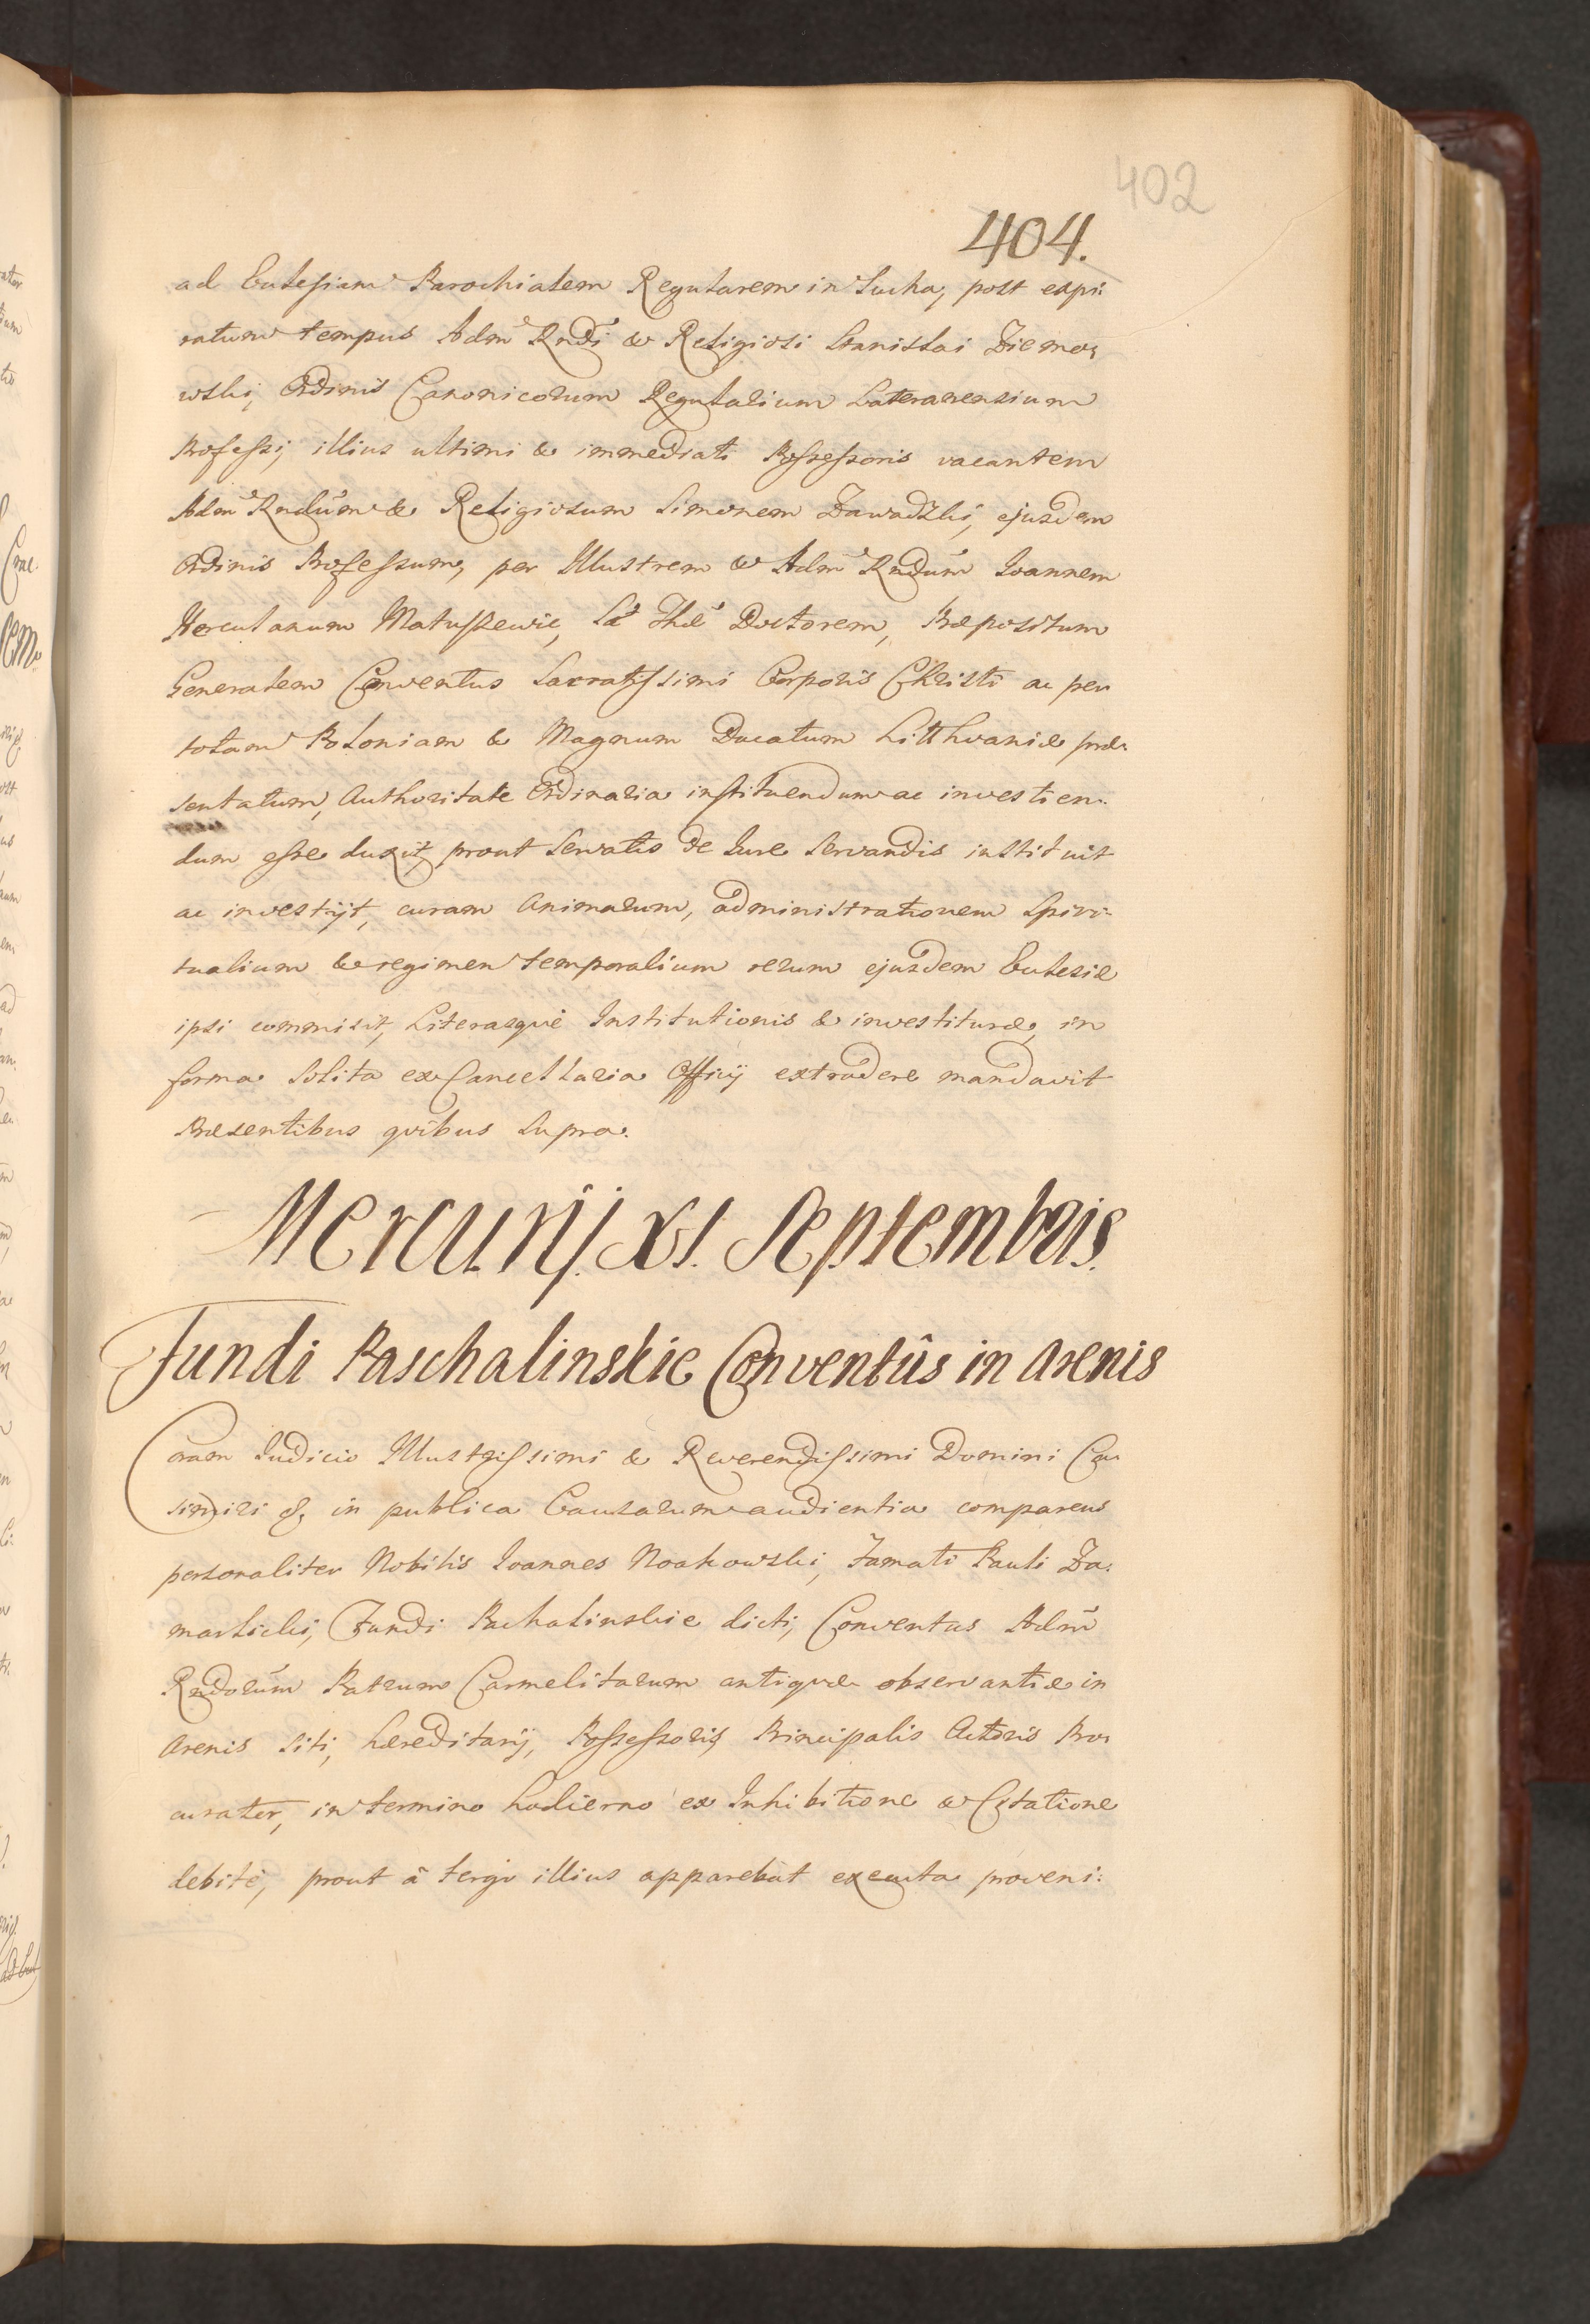 402
404.
ad Ecclesiam Parochialem Regularem in Sucha, post expi:
ratum tempus Adm Rndi & Religiosi Stanislai Ziemo,
wski, Ordinis Canonicorum Regularium Lateranensium
Professi, illius ultimi & immediati Possessoris vacantem
Adm Rndum & Religiosum Simonem Zawadzki, ejusdem
Ordinis Professum, per Illustrem & Adm Rndum Joannem
Herculanum Matuszewic, Sæ Thæ Doctorem, Præpositum
Generalem Conventus Sacratissimi Corporis Christi ac per
totam Poloniam & Magnum Ducatum Litthvaniæ præ:
sentatum, Authoritate Ordinaria instituendum ac investien:
dum esse duxit, prout Servatis de Jure Servandis instituit
ac investijt, curam Animarum, administrationem Spiri:
tualium & regimen temporalium rerum ejusdem Ecclesiæ
ipsi commisit, Literasquè Institutionis & investituræ, in
forma solita ex Cancellaria Officij extradere mandavit
Præsentibus quibus Supra.
Mercurij XI. Septembris.
Fundi Paschalinskie Conventûs in Arenis
Coram Judicio Illustrissimi & Reverendissimi Domini Ca,
simiri &. in publica Causarum audientia comparens
personaliter Nobilis Joannes Noakowski, Famati Pauli Za:
marlicki, Fundi Pachalinskie dicti, Conventus Adm
Rndorum Patrum Carmelitarum antiquæ observantiæ in
Arenis siti, hæreditarij, Possessoris, Principalis Actoris Pro,
curator, in termino hodierno ex Inhibitione & Citatione
debitè, prout à tergo illius apparebat executa proveni: